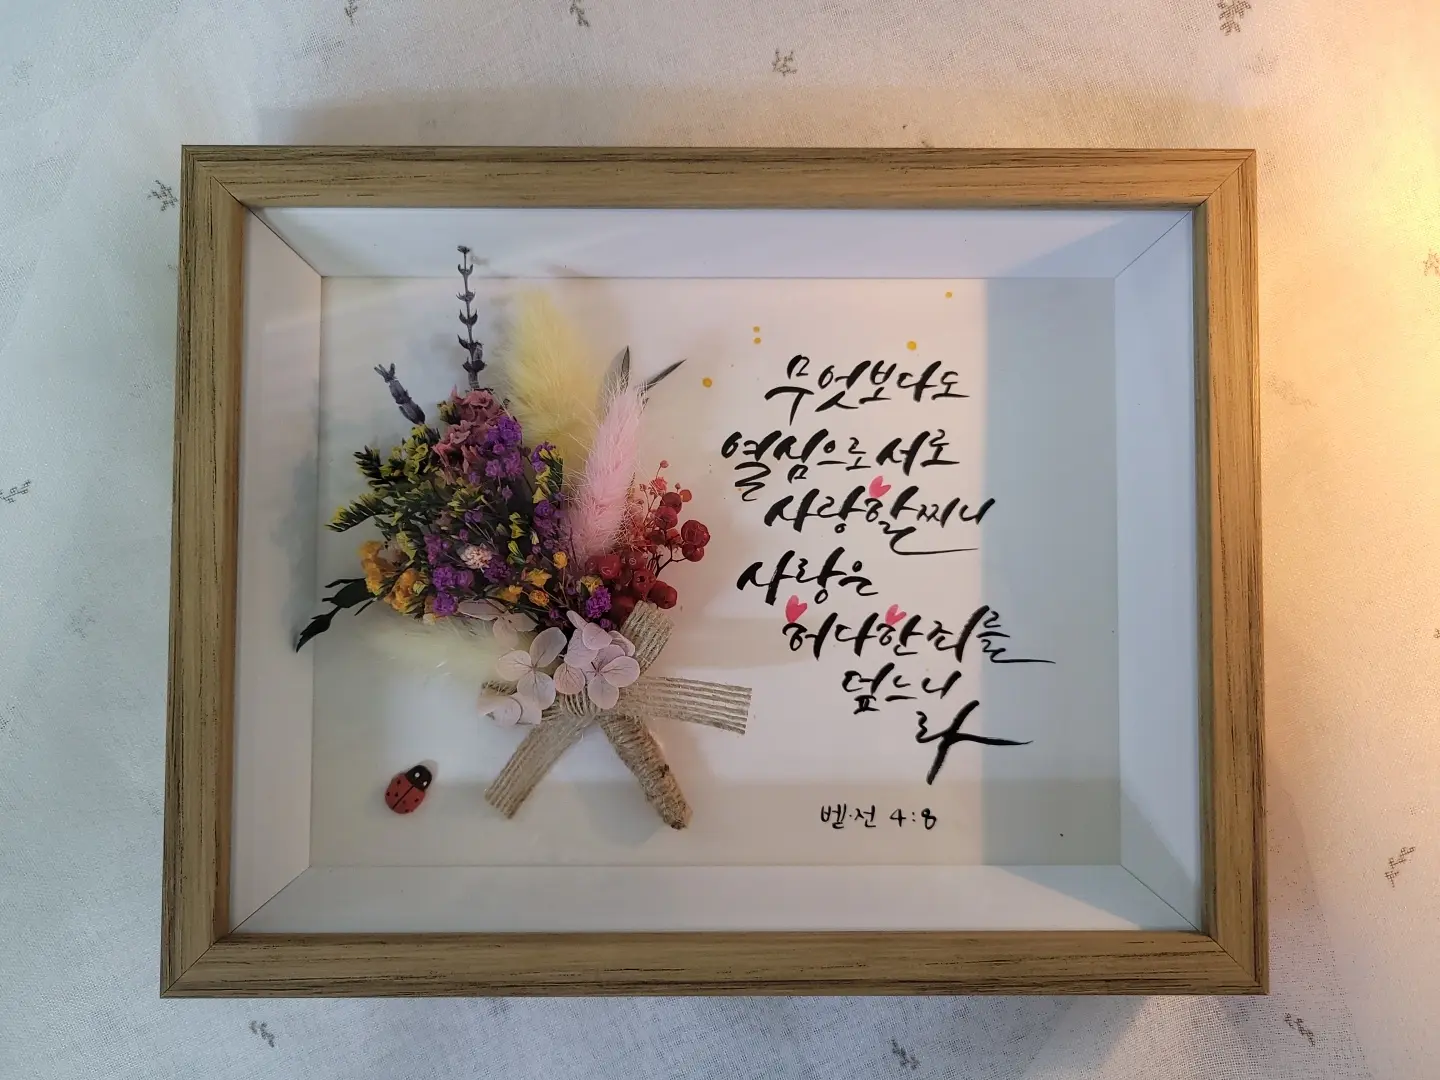 무엇보다도
열심으로 서로
사랑할찌니
사랑은
허다한 죄를
덮느니
라
벧.전 4:8